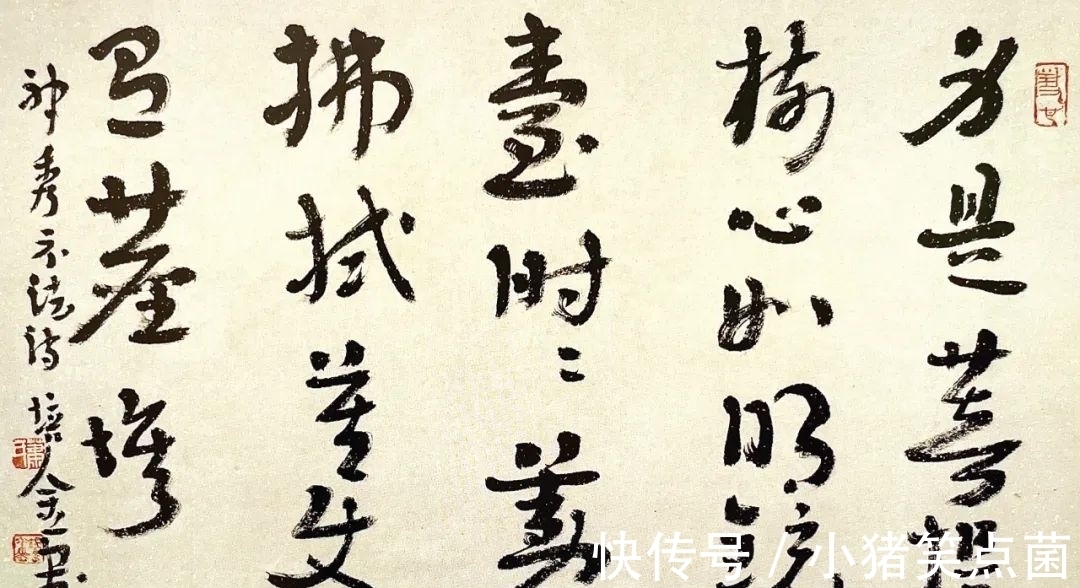 身是菩提
樹心如明鏡
臺時々勤
拂拭莫使
有塵埃
神秀示法詩 培金書
快传号 / 小猪笑点菌